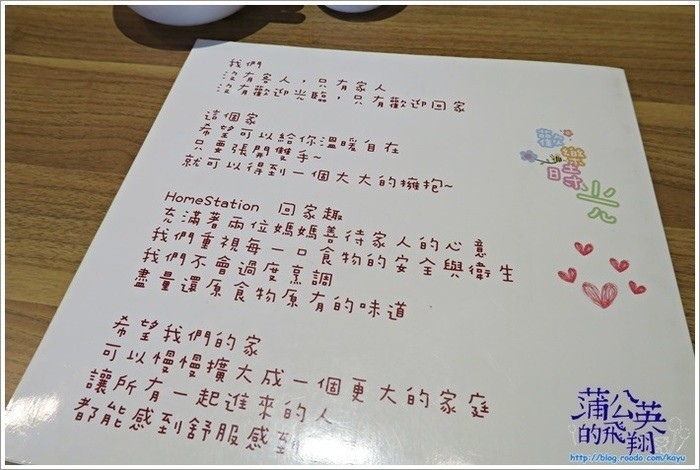 我們
沒有客人，只有家人
沒有歡迎光臨，只有歡迎回家
這個家
希望可以給你溫暖自在
只要張開雙手~
就可以得到一個大大的擁抱~
HomeStation 回家趣
充滿著兩位媽媽善待家人的心意
我們重視每一口食物的安全與衛生
我們不會過度烹調
盡量還原食物原有的味道
希望我們的家
可以慢慢擴大成一個更大的家庭
讓所有一起進來的人
都能感到舒服感到
歡樂時光
蒲公英
的飛翔
http://blog.roodo.com/kayu